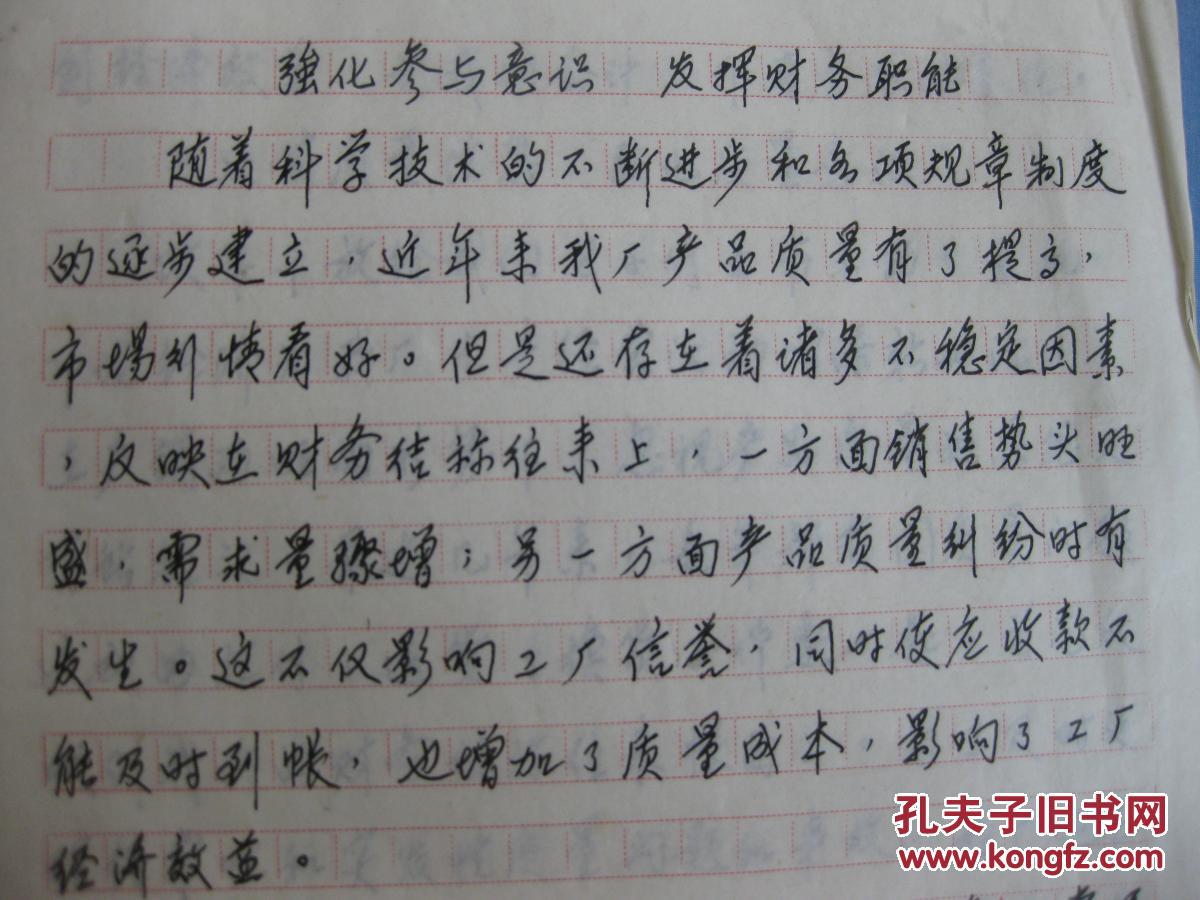 強化参与意识 发挥财务职能
随着科学技术的不断进步和各项规章制度
的逐步建立，近年来我厂产品质量有了提高，
市场行情看好。但是还存在着诸多不稳定因素
，反映在财务结称往来上，一方面销售势头旺
盛，需求量骤增；另一方面产品质量纠纷时有
发生。这不仅影响工厂信誉，同时使应收款不
能及时到帐，也增加了质量成本，影响了工厂
经济效益。
孔夫子旧书网
www.kongfz.com